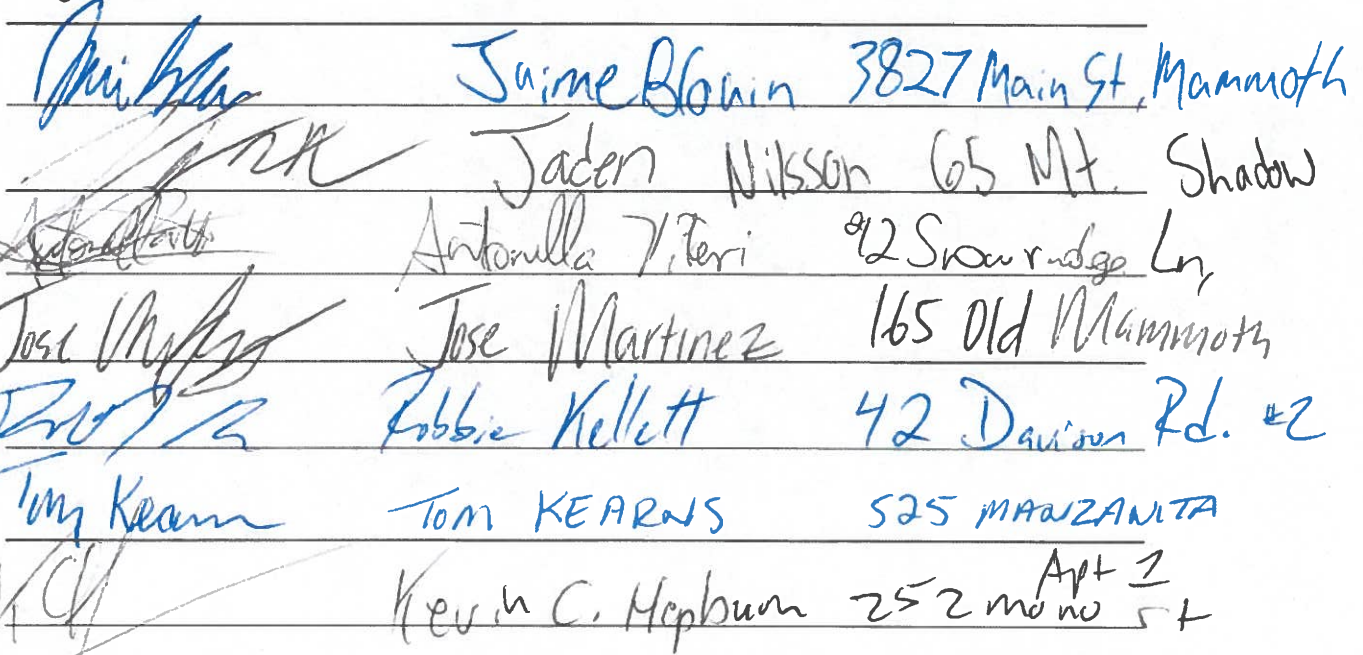 Jaime Blouin 3827 Main St, Mammoth
Jaden Nilsson 65 Mt. Shadow
Antonella Viteri 92 Snowridge Ln,
Jose Jose Martinez 165 Old Mammoth
Robbie Kellett 42 Davison Rd. #2
Tom Kearns TOM KEARNS 525 MANZANITA
Apt 1
Kevin C. Hepburn 252 mono st